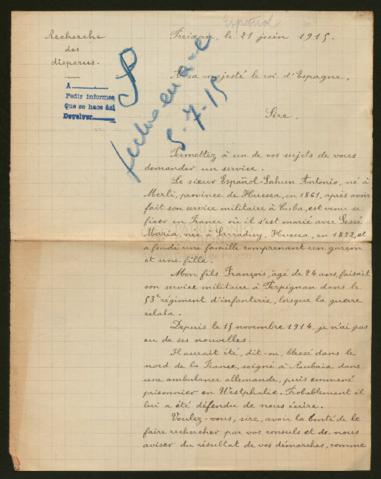 Español
Recherche
des
disparus.
le 21 juin 1915.
A sa majesté le roi d'Espagne.
A
Pedir informes
Que se hace así
Devolver
5-7-15
Sire,
Permettez à un de vos sujets de vous
demander un service.
Le sieur Español-Sahun Antonio, né à
Merli, province de Huesca, en 1861, après avoir
fait son service militaire à Cuba, est venu se
fixer en France où il s'est marié avec
Maria, née à Huesca, en
a fondé une famille comprenant un garçon
et une fille.
Mon fils François, âgé de 24 ans, faisait
son service militaire à Perpignan dans le
53e régiment d'infanterie, lorsque la guerre
éclata.
Depuis le 15 novembre 1914, je n'ai pas
eu de ses nouvelles.
Il aurait été, dit-on, blessé dans le
nord de la France, soigné à Roubaix dans
une ambulance allemande, puis emmené
prisonnier en Westphalie. Probablement il
lui a été défendu de nous écrire.
Voulez-vous, sire, avoir la bonté de le
faire rechercher par vos consuls et de nous
aviser du résultat de vos démarches, comme